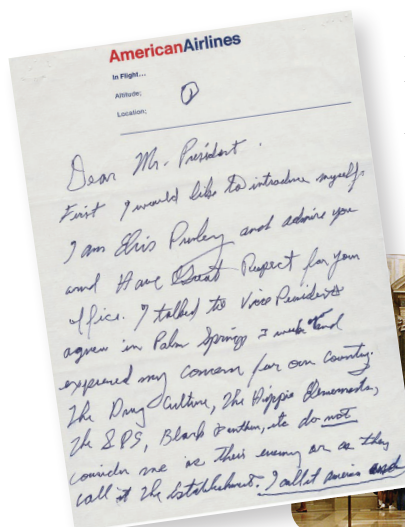 AmericanAirlines
In Flight...
Altitude;
Location;
①
Dear Mr. President.
First I would like to introduce myself.
I am Elvis Presley and admire you
and Have Great Respect for your
office. I talked to Vice President
agnew in Palm Springs 3 weeks ago and
expressed my concern for our country.
The Drug Culture, The Hippie Elements,
The SDS, Black Panthers, etc do not
consider me as their enemy or as they
call it The Establishment. I call it america and